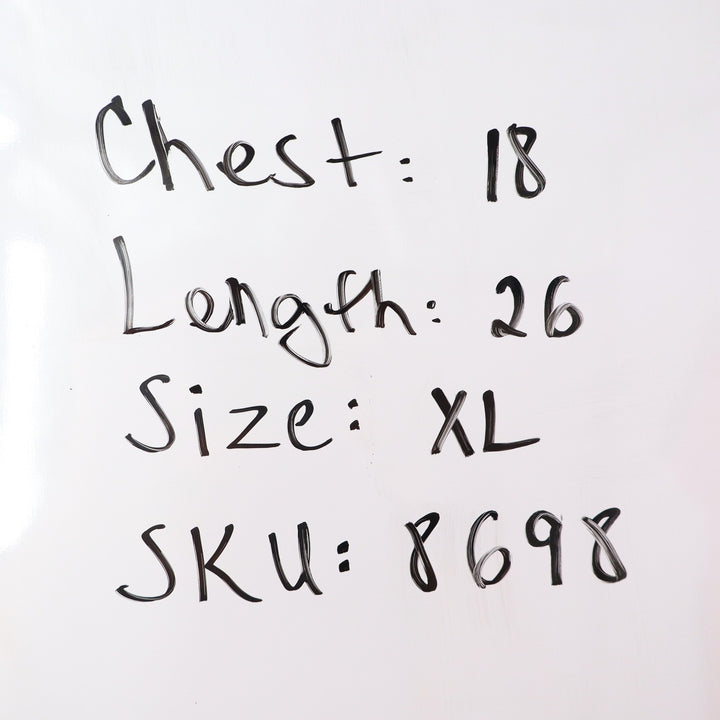 Chest: 18
Length: 26
Size: XL
SKU: 8698